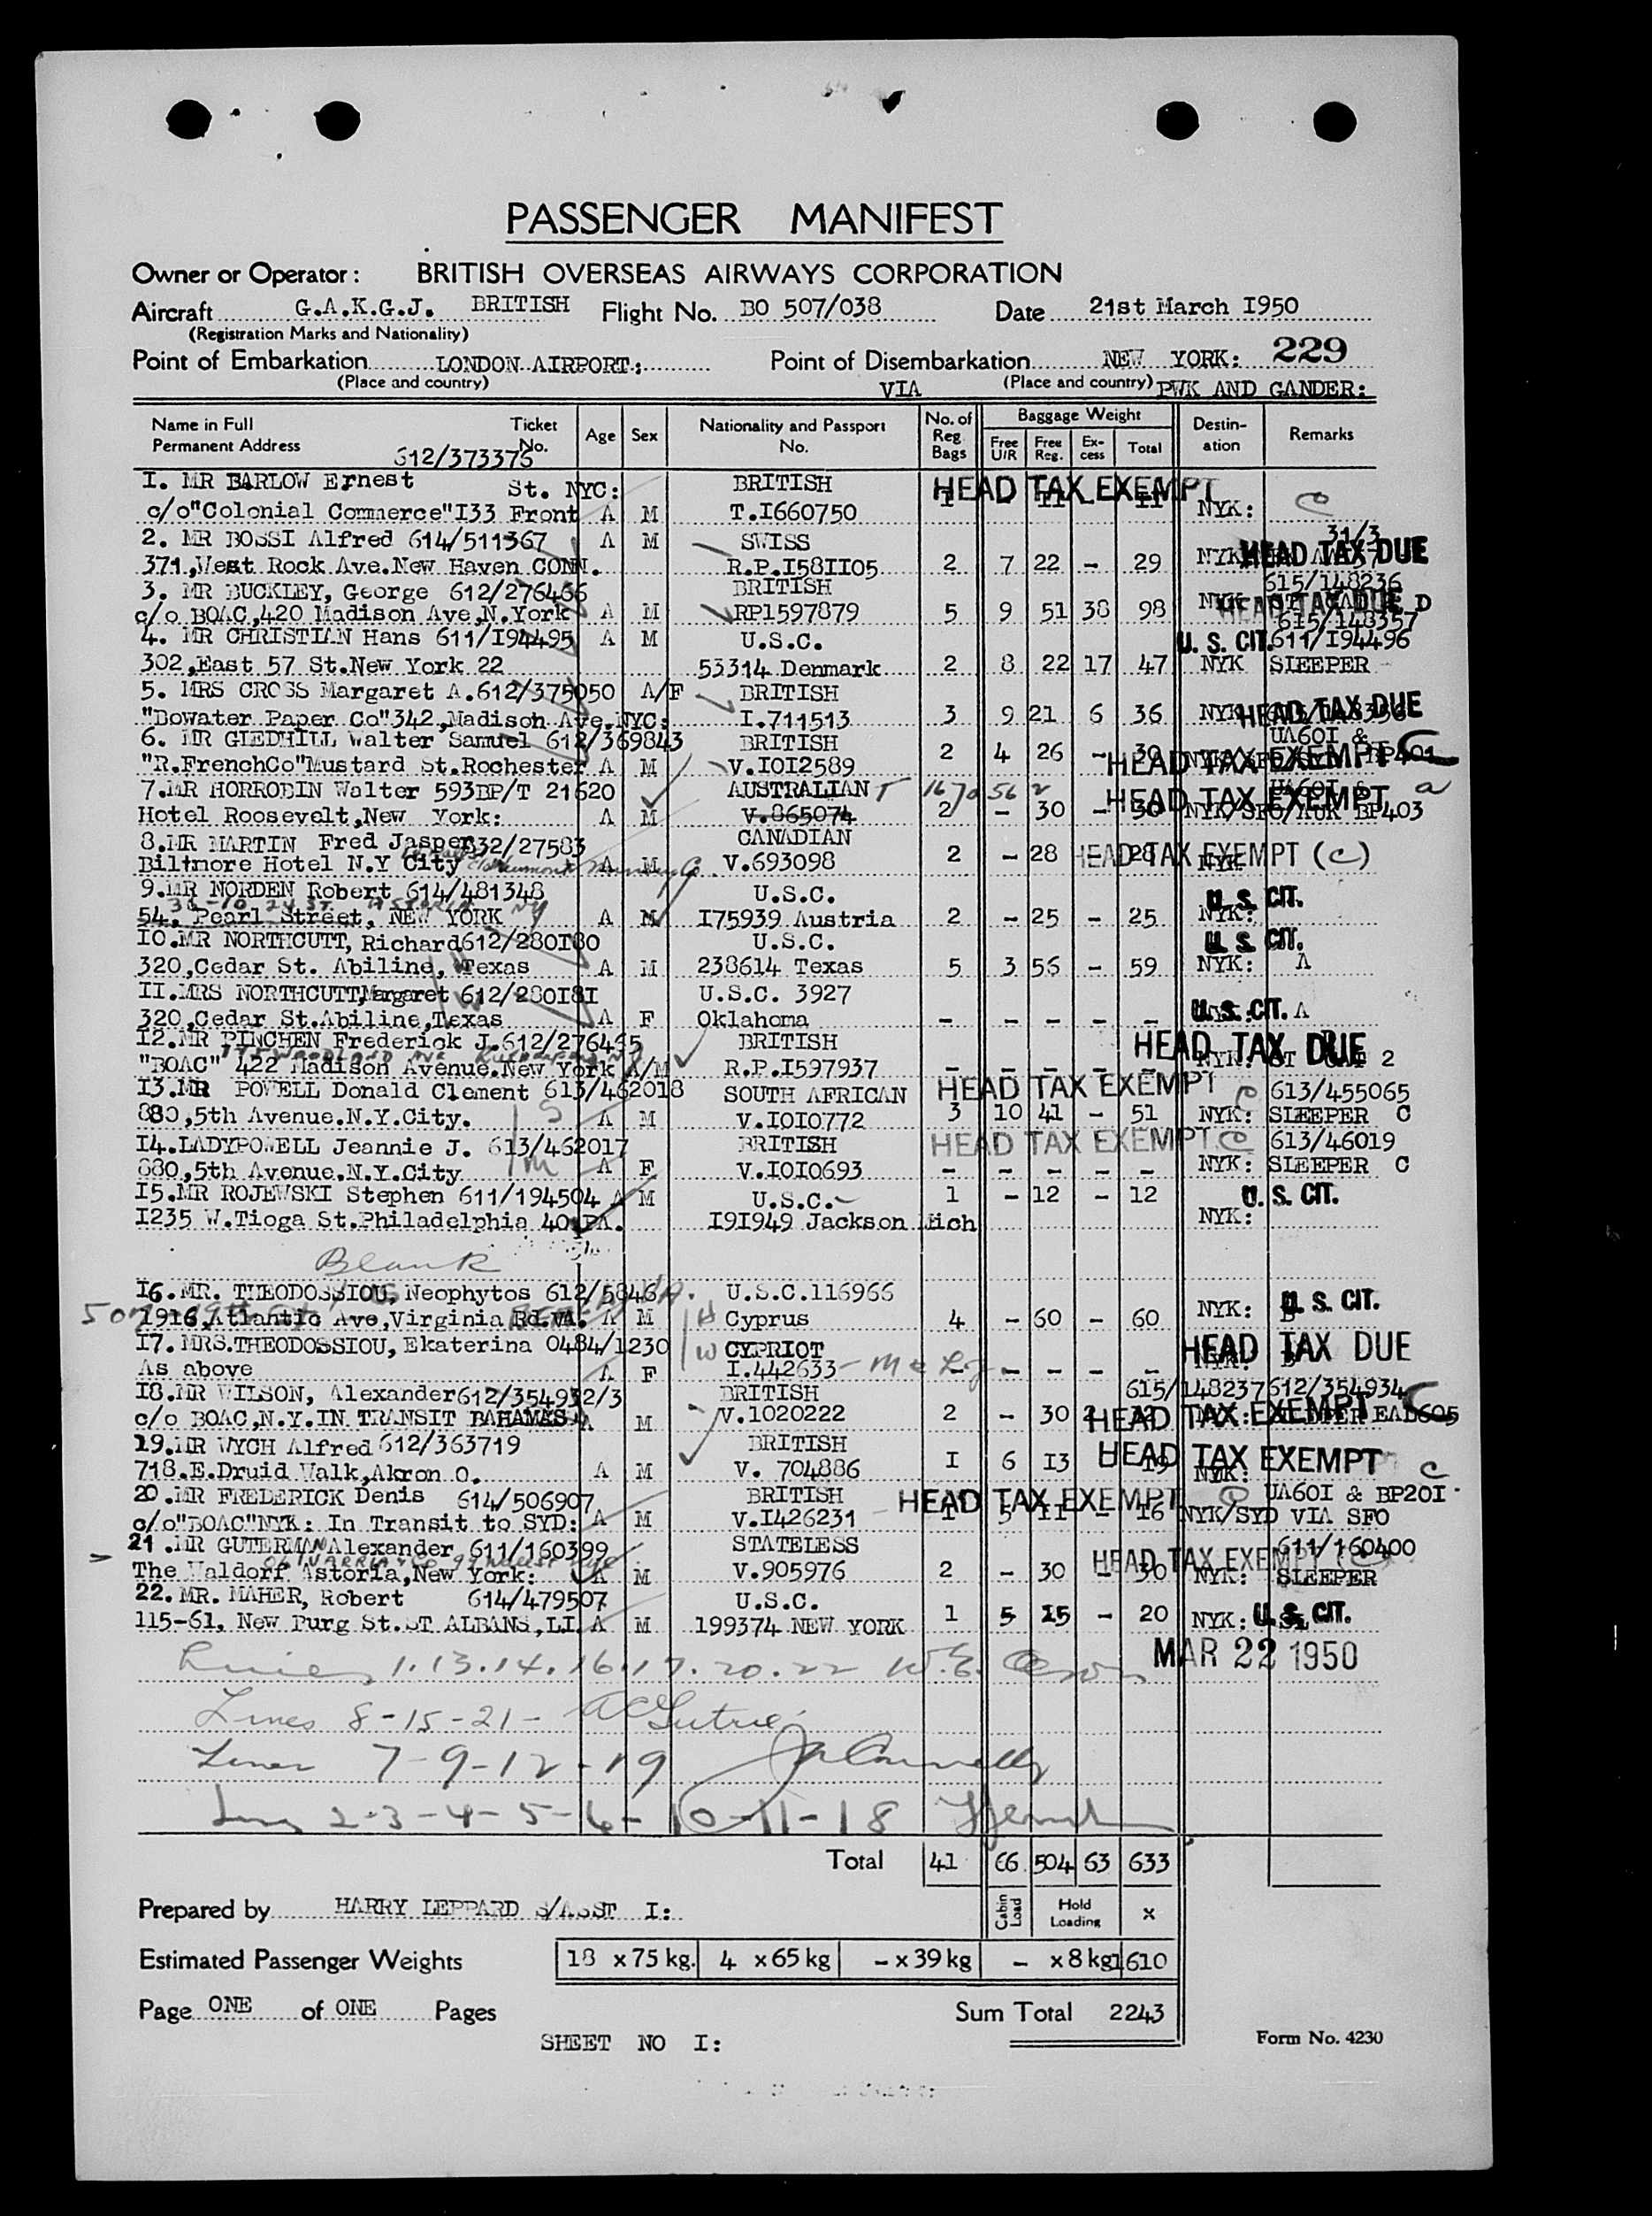 PASSENGER MANIFEST
Owner or Operator: BRITISH OVERSEAS AIRWAYS CORPORATION
Aircraft G.A.K.G.J. BRITISH Flight No. BO 507/038 Date 21st March I950
(Registration Marks and Nationality)
Point of Embarkation LONDON AIRPORT: Point of Disembarkation NEW YORK: 229
(Place and country) VIA (Place and country) PWK AND GANDER:
Name in Full Permanent Address Ticket No. Age Sex Nationality and Passport No. No. of Reg. Bags Baggage Weight Free U/R Free Reg. Excess Total Destination Remarks
612/373375
I. MR BARLOW Ernest St. NYC: BRITISH HEAD TAX EXEMPT
c/o"Colonial Commerce"I33 Front A M T.I660750 NYK: C
2. MR BOSSI Alfred 614/511367 A M SWISS 31/3 HEAD TAX DUE
371,West Rock Ave.New Haven CONN. R.P.I58II05 2 7 22 - 29 NYK
3. MR BUCKLEY, George 612/276466 BRITISH 615/148236
c/o BOAC,420 Madison Ave,N.York A M RP1597879 5 9 51 38 98 NYK HEAD TAX DUE D
615/148357
4. MR CHRISTIAN Hans 611/I94495 A M U.S.C. U. S. CIT. 611/I94496
302,East 57 St.New York 22 53314 Denmark 2 8 22 17 47 NYK SLEEPER
5. MRS CROSS Margaret A.612/375050 A/F BRITISH
"Bowater Paper Co"342,Madison Ave.NYC: I.711513 3 9 21 6 36 NYK HEAD TAX DUE
6. MR GLEDHILL Walter Samuel 612/369843 BRITISH 2 4 26 - 30 UA60I &
"R.FrenchCo"Mustard St.Rochester A M V.I0I2589 HEAD TAX EXEMPT C
7.MR HORROBIN Walter 593BP/T 21620 AUSTRALIAN T 167056 2 HEAD TAX EXEMPT a
Hotel Roosevelt,New York: A M V.865074 2 - 30 - 30 NYK/SFO/AUK BP403
8.MR MARTIN Fred Jasper 832/27583 CANADIAN
Biltmore Hotel N.Y City A M V.693098 2 - 28 28 HEAD TAX EXEMPT (C)
9.MR NORDEN Robert 614/481348 U.S.C. U. S. CIT.
36-10 24 ST. ASTORIA NY
54, Pearl Street, NEW YORK A M I75939 Austria 2 - 25 - 25 NYK:
IO.MR NORTHCUTT, Richard612/280I80 U.S.C. U. S. CIT.
320,Cedar St. Abiline, Texas A M 238614 Texas 5 3 56 - 59 NYK: A
II.MRS NORTHCUTT,Margaret 612/280I8I U.S.C. 3927
320,Cedar St.Abiline,Texas A F Oklahoma - - - - - U. S. CIT. A
I2.MR PINCHEN Frederick J.612/276465 BRITISH HEAD TAX DUE
"BOAC" 422 Madison Avenue.New York A/M R.P.I597937 - - - - - NYK: 2
I3.MR POWELL Donald Clement 613/462018 SOUTH AFRICAN HEAD TAX EXEMPT C 613/455065
880,5th Avenue.N.Y.City. S A M V.I0I0772 3 10 41 - 51 NYK: SLEEPER C
I4.LADYPOWELL Jeannie J. 613/462017 BRITISH HEAD TAX EXEMPT C 613/46019
880,5th Avenue.N.Y.City m A F V.I0I0693 - - - - - NYK: SLEEPER C
I5.MR ROJEWSKI Stephen 611/194504 A M U.S.C. 1 - 12 - 12 U. S. CIT.
I235 W.Tioga St.Philadelphia 40.PA. I9I949 Jackson Mich NYK:
Blank
I6.MR. THEODOSSIOU, Neophytos 612/5846 U.S.C.116966
1916,Atlantic Ave,Virginia Bd.VA. A M H Cyprus 4 - 60 - 60 NYK: U. S. CIT.
I7.MRS.THEODOSSIOU, Ekaterina 0484/1230 W CYPRIOT HEAD TAX DUE
As above A F I.442633 - - - - -
I8.MR WILSON, Alexander612/354932/3 BRITISH 615/148237 612/354934
c/o BOAC,N.Y.IN TRANSIT BAHAMAS A M V.1020222 2 - 30 2 HEAD TAX EXEMPT C
19.MR WYCH Alfred 612/363719 BRITISH I 6 I3 19 HEAD TAX EXEMPT
718.E.Druid Walk,Akron O. A M V. 704886 NYK: C
20.MR FREDERICK Denis 614/506907 BRITISH HEAD TAX EXEMPT UA60I & BP20I
c/o"BOAC"NYK: In Transit to SYD: A M V.I426231 1 5 11 - 16 NYK/SYD VIA SFO
21.MR GUTERMAN Alexander 611/160399 STATELESS 611/160400
The Waldorf Astoria,New York: A M V.905976 2 - 30 - 30 HEAD TAX EXEMPT NYK: SLEEPER
22. MR. MAHER, Robert 614/479507 U.S.C.
115-61, New Purg St.ST ALBANS,LI A M 199374 NEW YORK 1 5 15 - 20 NYK: U. S. CIT.
MAR 22 1950
Lines 1.13.14.16.17.20.22 W.E.
Lines 8-15-21-
Lines 7-9-12-19
Lines 2-3-4-5-6-10-11-18
Total 41 66 504 63 633
Prepared by HARRY LEPPARD S/ASST I: Cabin Load Hold Loading x
Estimated Passenger Weights 18 x 75 kg. 4 x 65 kg - x 39 kg - x 8 kg 1610
Page ONE of ONE Pages Sum Total 2243
SHEET NO I: Form No. 4230